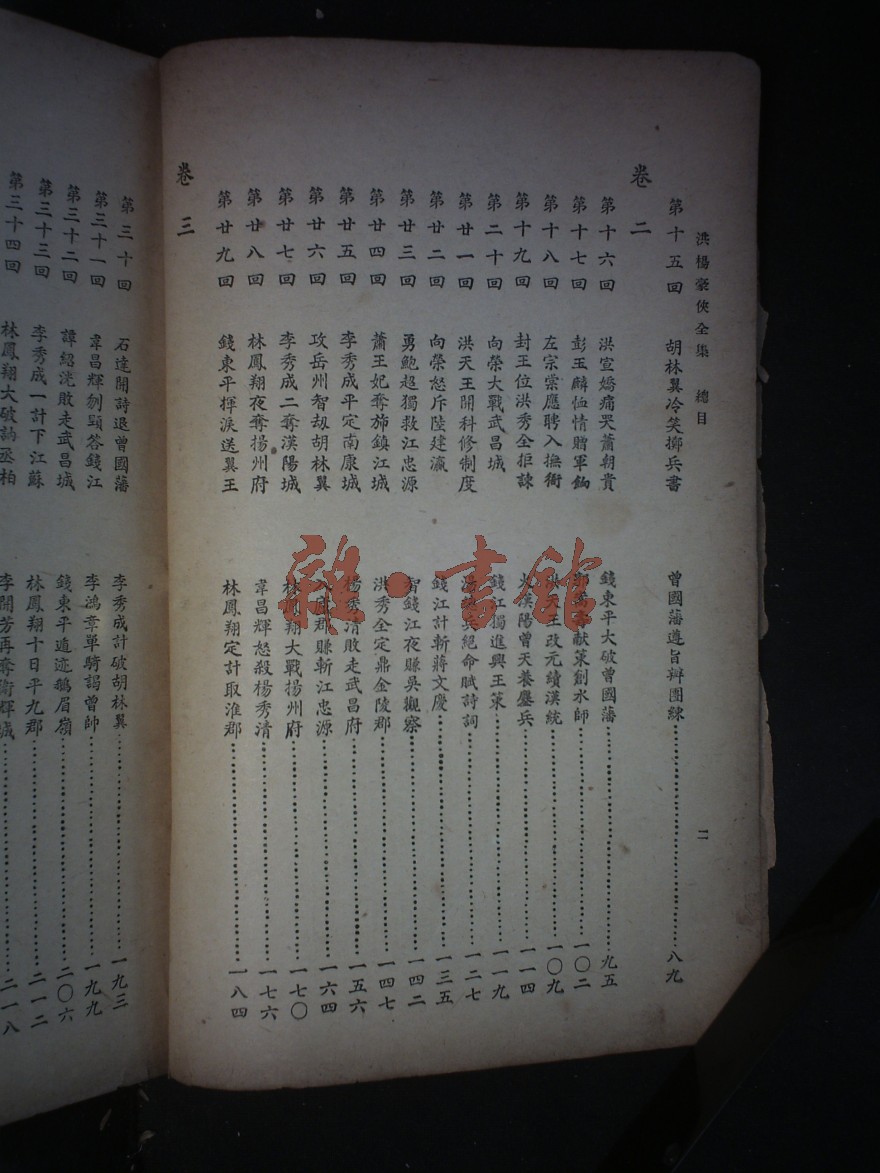 洪楊豪俠全集　總目　二
第十五回　胡林翼冷笑擲兵書　曾國藩遵旨辦團練……八九
卷二
第十六回　洪宣嬌痛哭蕭朝貴　錢東平大破曾國藩……九五
第十七回　彭玉麟恤情贈軍餉　獻策創水師……一〇二
第十八回　左宗棠應聘入撫衙　洪天王改元續漢統……一〇九
第十九回　封王位洪秀全拒諫　火漢陽曾天養鏖兵……一一四
第二十回　向榮大戰武昌城　錢江獨進興王策……一一九
第廿一回　洪天王開科修制度　湯　兵絕命賦詩詞……一二七
第廿二回　向榮怒斥陸建瀛　錢江計斬蔣文慶……一三五
第廿三回　勇鮑超獨救江忠源　智錢江夜賺吳觀察……一四二
第廿四回　蕭王妃奪旆鎮江城　洪秀全定鼎金陵郡……一四七
第廿五回　李秀成平定南康城　楊秀清敗走武昌府……一五六
第廿六回　攻岳州智劫胡林翼　郡賺斬江忠源……一六四
第廿七回　李秀成二奪漢陽城　林鳳翔大戰揚州府……一七〇
第廿八回　林鳳翔夜奪揚州府　韋昌輝怒殺楊秀清……一七六
第廿九回　錢東平揮淚送翼王　林鳳翔定計取淮郡……一八四
卷三
第三十回　石達開詩退曾國藩　李秀成計破胡林翼……一九三
第三十一回　韋昌輝刎頸答錢江　李鴻章單騎謁曾帥……一九九
第三十二回　譚紹洸敗走武昌城　錢東平遁迹鵝眉嶺……二〇六
第三十三回　李秀成一計下江蘇　林鳳翔十日平九郡……二一二
第三十四回　林鳳翔大破訥丞相　李開芳再奪衛輝城……二一八